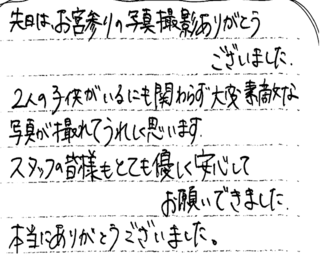 先日は、お宮参りの写真撮影ありがとう
ございました。
2人の子供がいるにも関わらず大変素敵な
写真が撮れてうれしく思います。
スタッフの皆様もとても優しく安心して
お願いできました。
本当にありがとうございました。